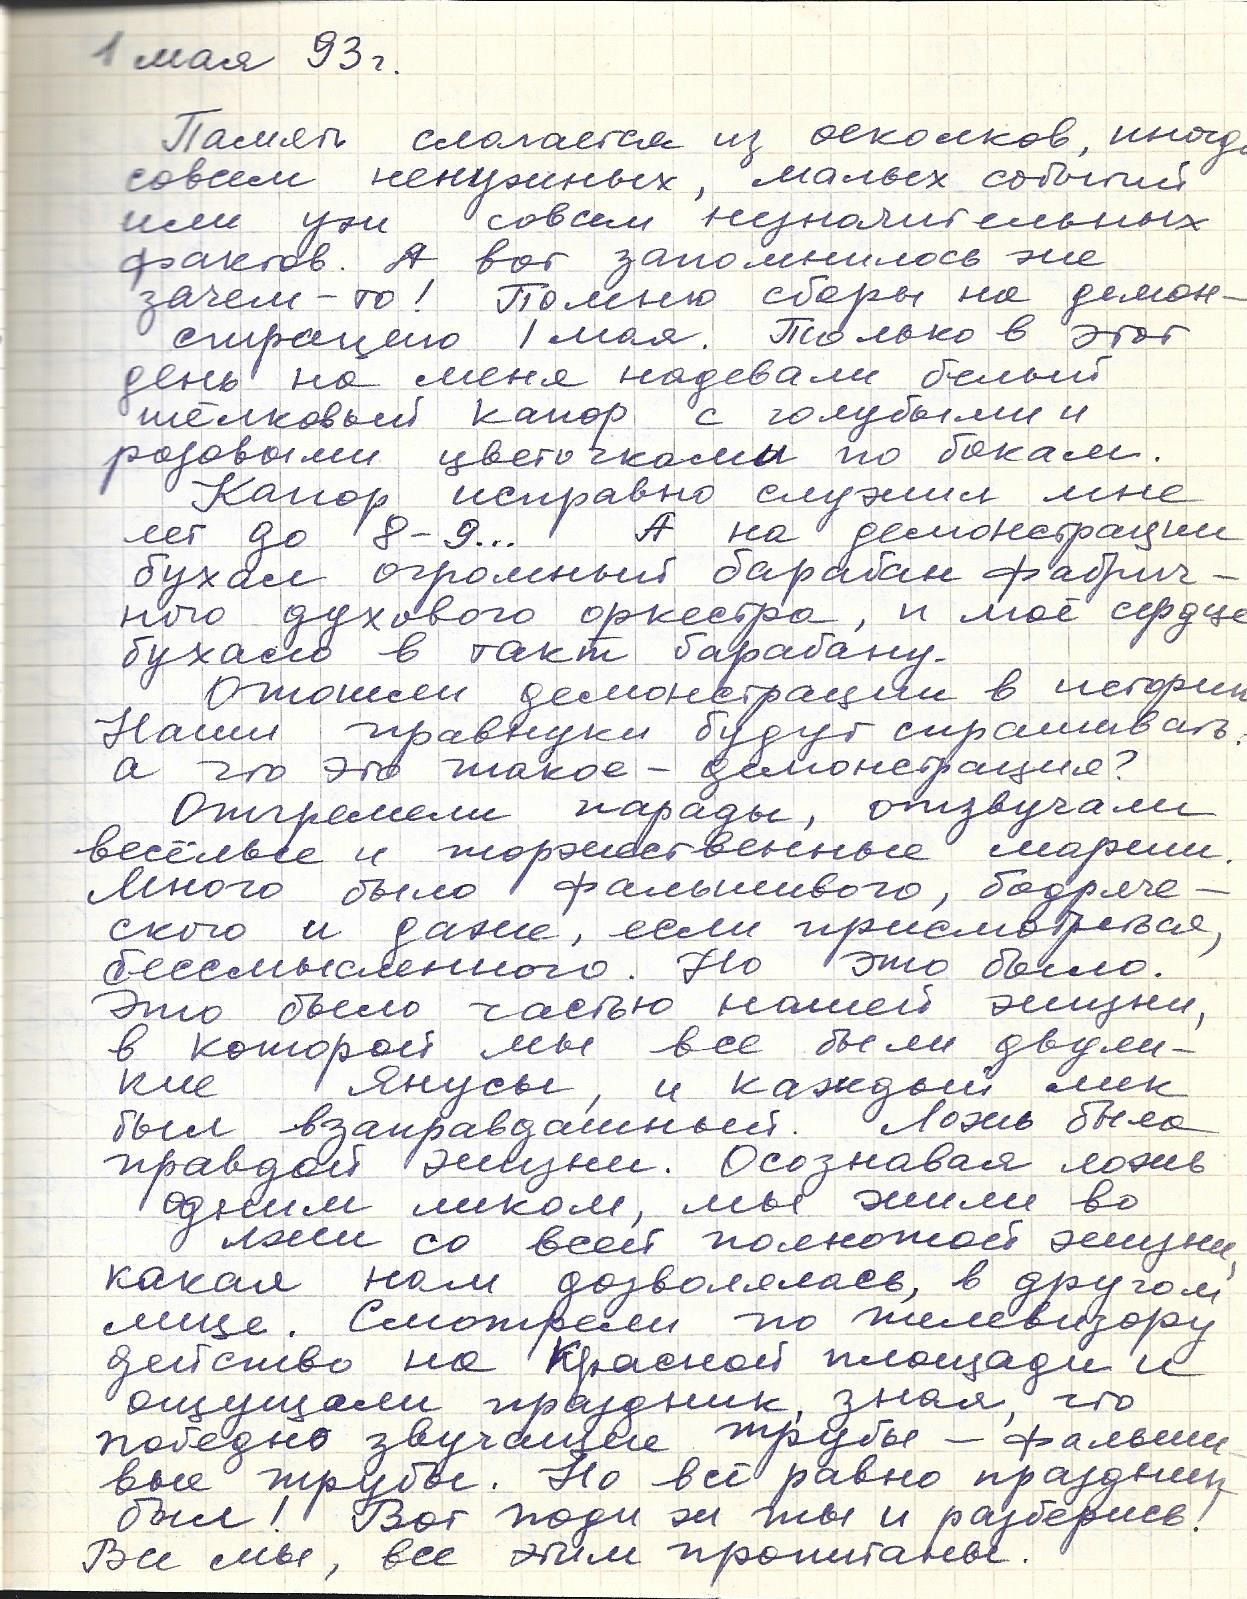 1 мая 93 г.
Память слагается из осколков, иногда
совсем ненужных, малых событий
или уж совсем незначительных
фактов. А вот запомнилось же
зачем-то! Помню сборы на демон-
страцию 1 мая. Только в этот
день на меня надевали белый
шёлковый капор с голубыми и
розовыми цветочками по бокам.
Капор исправно служил мне
лет до 8-9... А на демонстрации
бухал огромный барабан фабрич-
ного духового оркестра, и моё сердце
бухало в такт барабану.
Отошли демонстрации в историю
Наши правнуки будут спрашивать:
а что это такое – демонстрация?
Отгремели парады, отзвучали
весёлые и торжественные марши.
Много было фальшивого, бодряче-
ского и даже, если присмотреться,
бессмысленного. Но это было.
Это было частью нашей жизни,
в которой мы все были двули-
кие Янусы, и каждый лик
был взаправдашный. Ложь была
правдой жизни. Осознавая ложь
одним ликом, мы жили во
лжи со всей полнотой жизни,
какая нам дозволялась, в другом
лице. Смотрели по телевизору
действо на Красной площади и
ощущали праздник, зная, что
победно звучащие трубы – фальши-
вые трубы. Но всё равно праздник
был! Вот поди ж ты и разберись!
Все мы, все этим пропитаны.